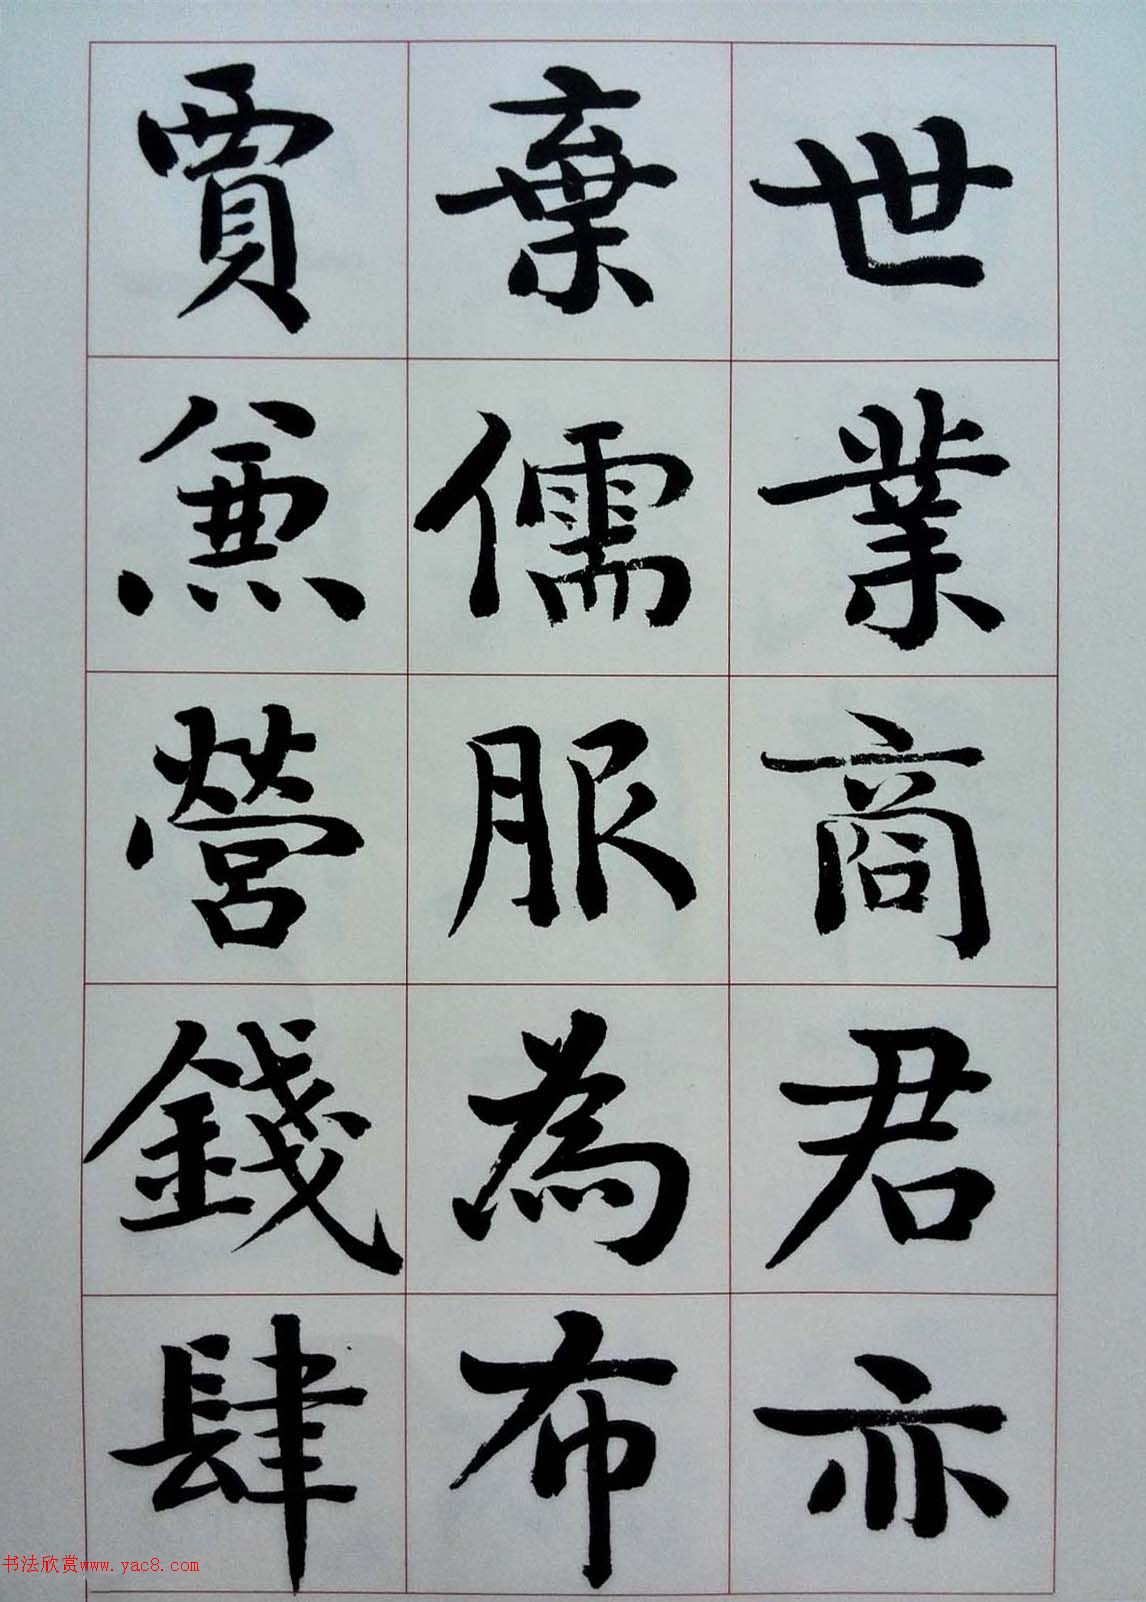 世業商君亦
棄儒服為布
賈兼營錢肆
书法欣赏www.yac8.com